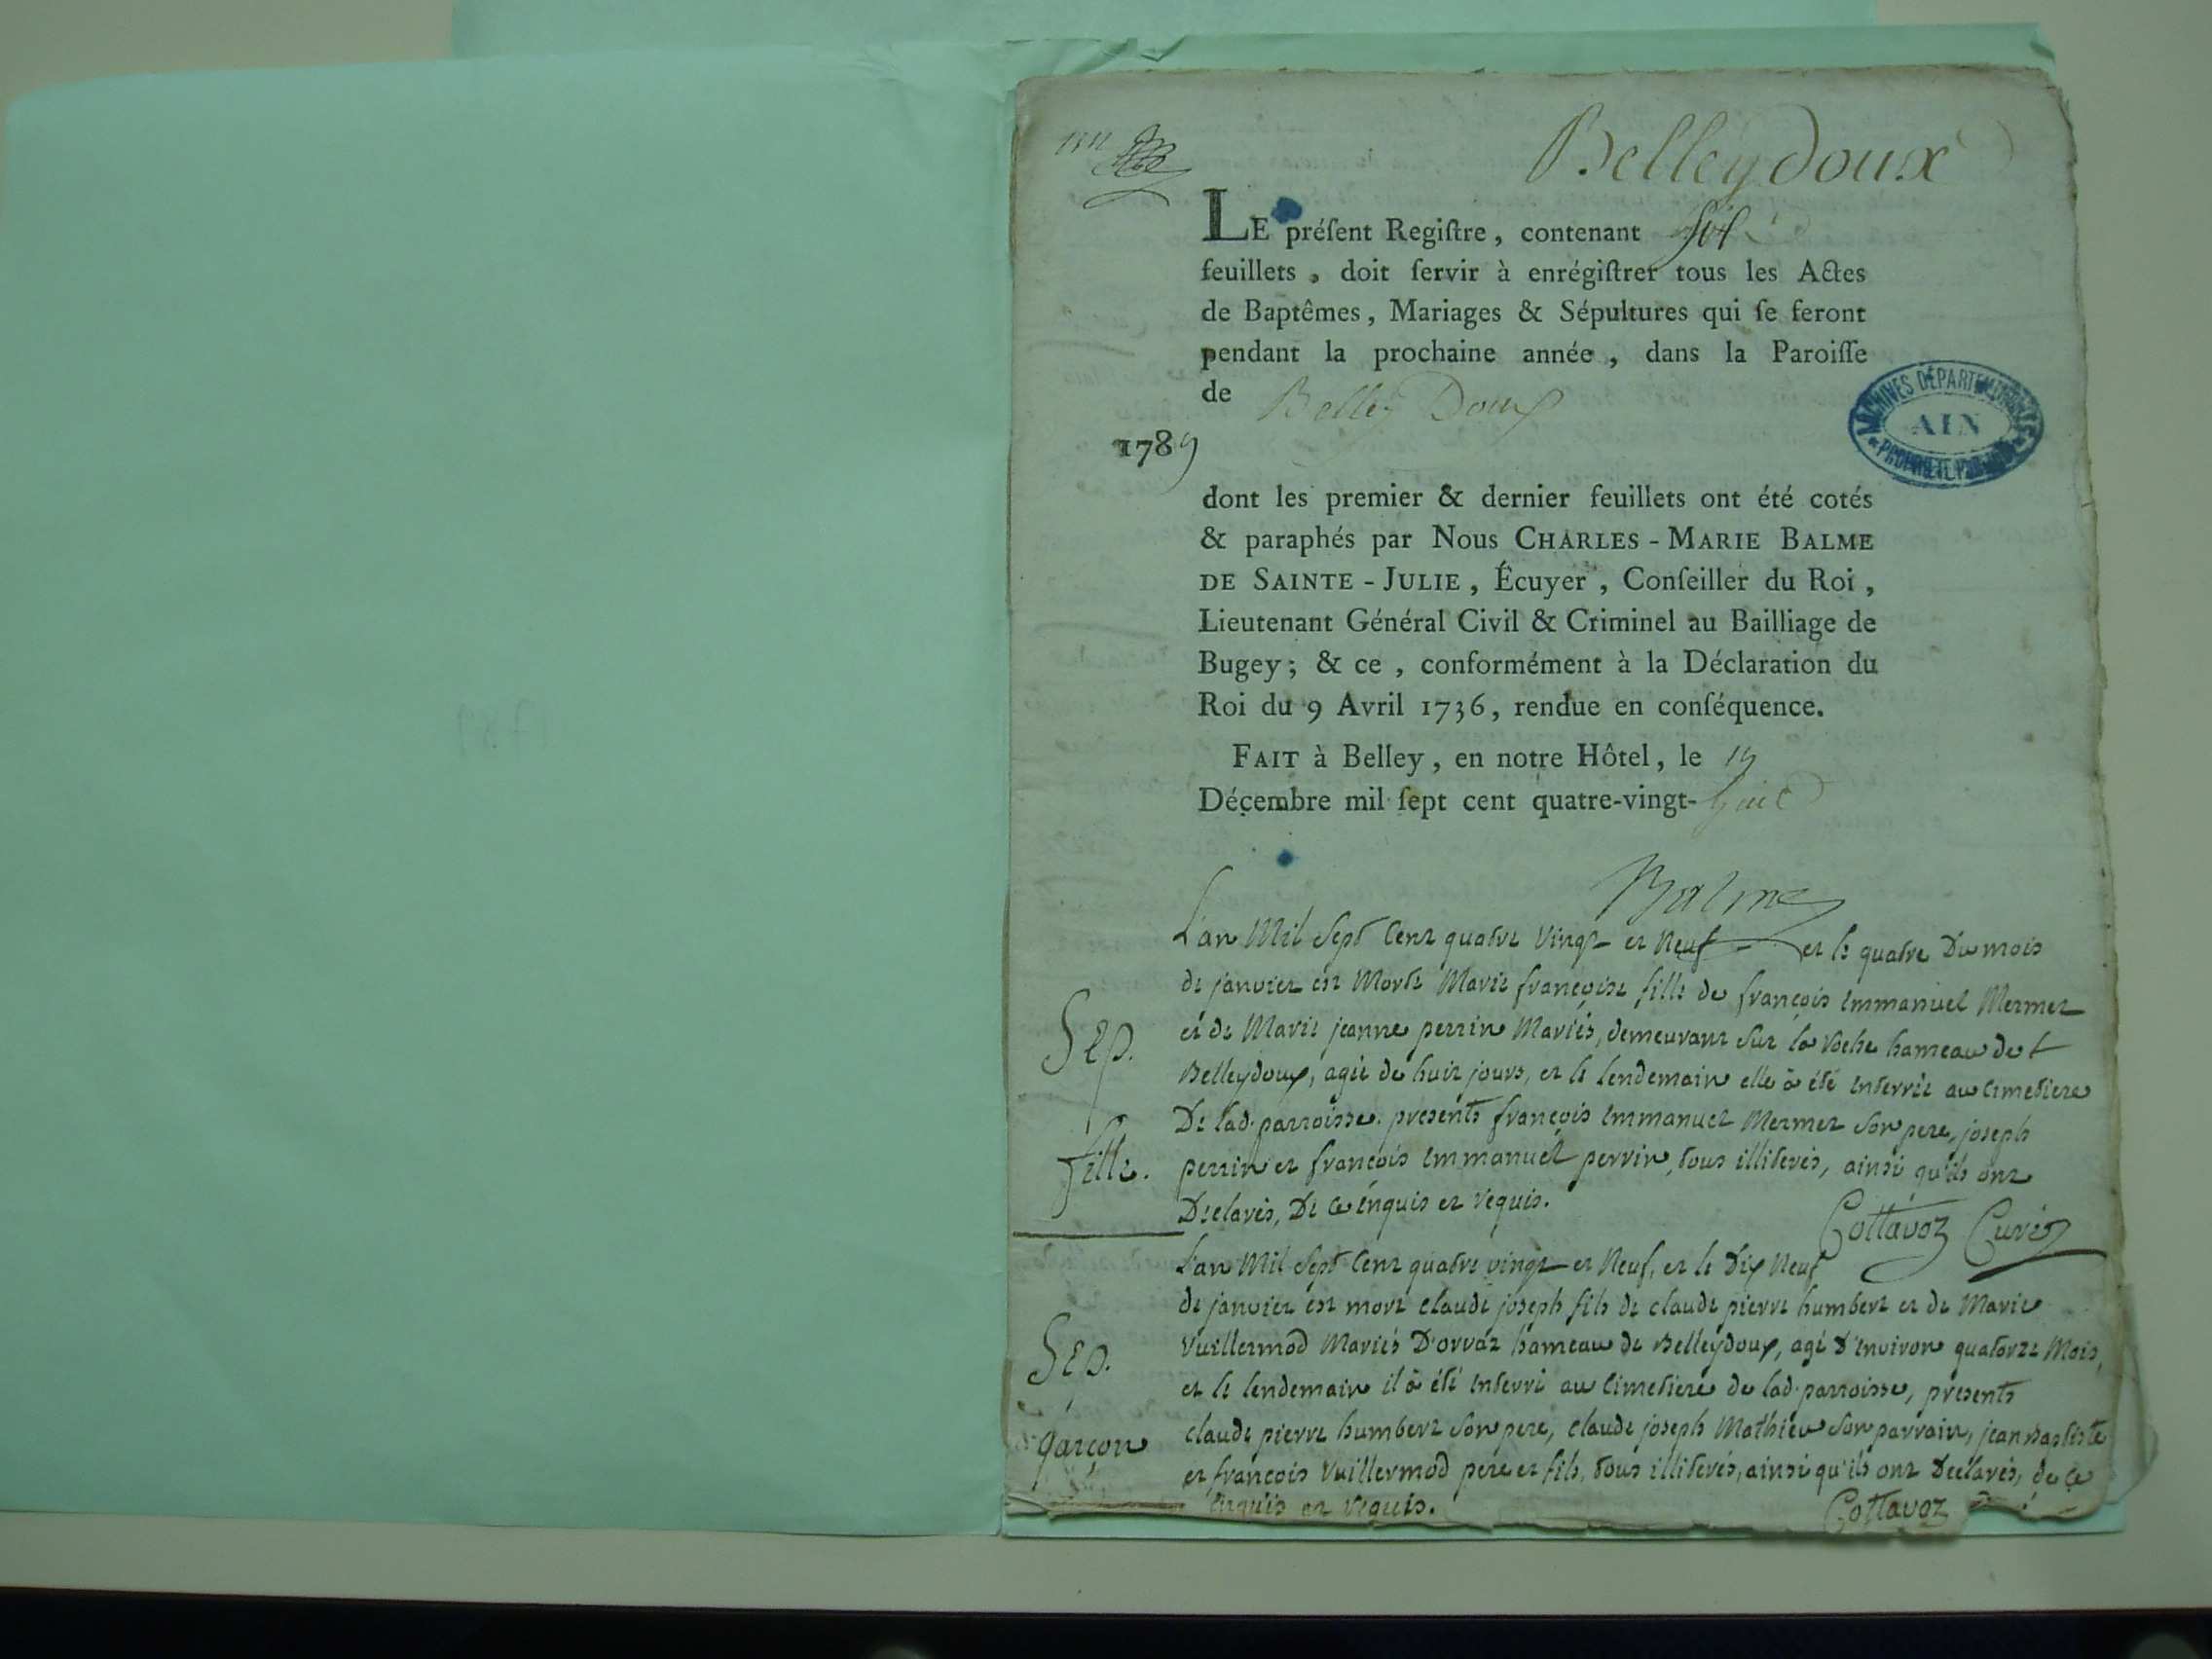 Belleydoux
LE préſent Regiſtre, contenant six
feuillets, doit ſervir à enrégiſtrer tous les Actes
de Baptêmes, Mariages & Sépultures qui ſe feront
pendant la prochaine année, dans la Paroiſſe
de Belley Doux
ARCHIVES DÉPARTEMENTALES
AIN
PROPRIÉTÉ PUBLIQUE
1789
dont les premier & dernier feuillets ont été cotés
& paraphés par Nous CHARLES-MARIE BALME
DE SAINTE-JULIE, Écuyer, Conſeiller du Roi,
Lieutenant Général Civil & Criminel au Bailliage de
Bugey; & ce, conformément à la Déclaration du
Roi du 9 Avril 1736, rendue en conſéquence.
FAIT à Belley, en notre Hôtel, le 19
Décembre mil ſept cent quatre-vingt-huit
Balme
L'an Mil Sept Cent quatre vingt et Neuf et le quatre Du mois
de janvier est Morte Marie françoise fille de françois Emmanuel Mermet
Sep. et de Marie jeanne perrin Mariés, demeurant Sur la roche hameau de
Belleydoux, agée de huit jours, et le lendemain elle à été enterrée au Cimetiere
De lad. parroisse. presents françois Emmanuel Mermet Son pere, joseph
fille. perrin et françois Emmanuel perrin, tous illiterés, ainsi qu'ils ont
Declarés, De ce enquis et requis.
Cottavoz Curé
L'an Mil Sept Cent quatre vingt et Neuf, et le Dix Neuf
de janvier est mort claude joseph fils de claude pierre humbert et de Marie
Sep. Vuillermod Mariés D'orvaz hameau de Belleydoux, agé d'environ quatorze Mois,
et le lendemain il à été enterré au Cimetiere de lad. parroisse, presents
garçon claude pierre humbert Son pere, claude joseph Mathieu Son parrain, jean Baptiste
et françois Vuillermod pere et fils, tous illiterés, ainsi qu'ils ont Declarés, de ce
enquis et requis.
Cottavoz